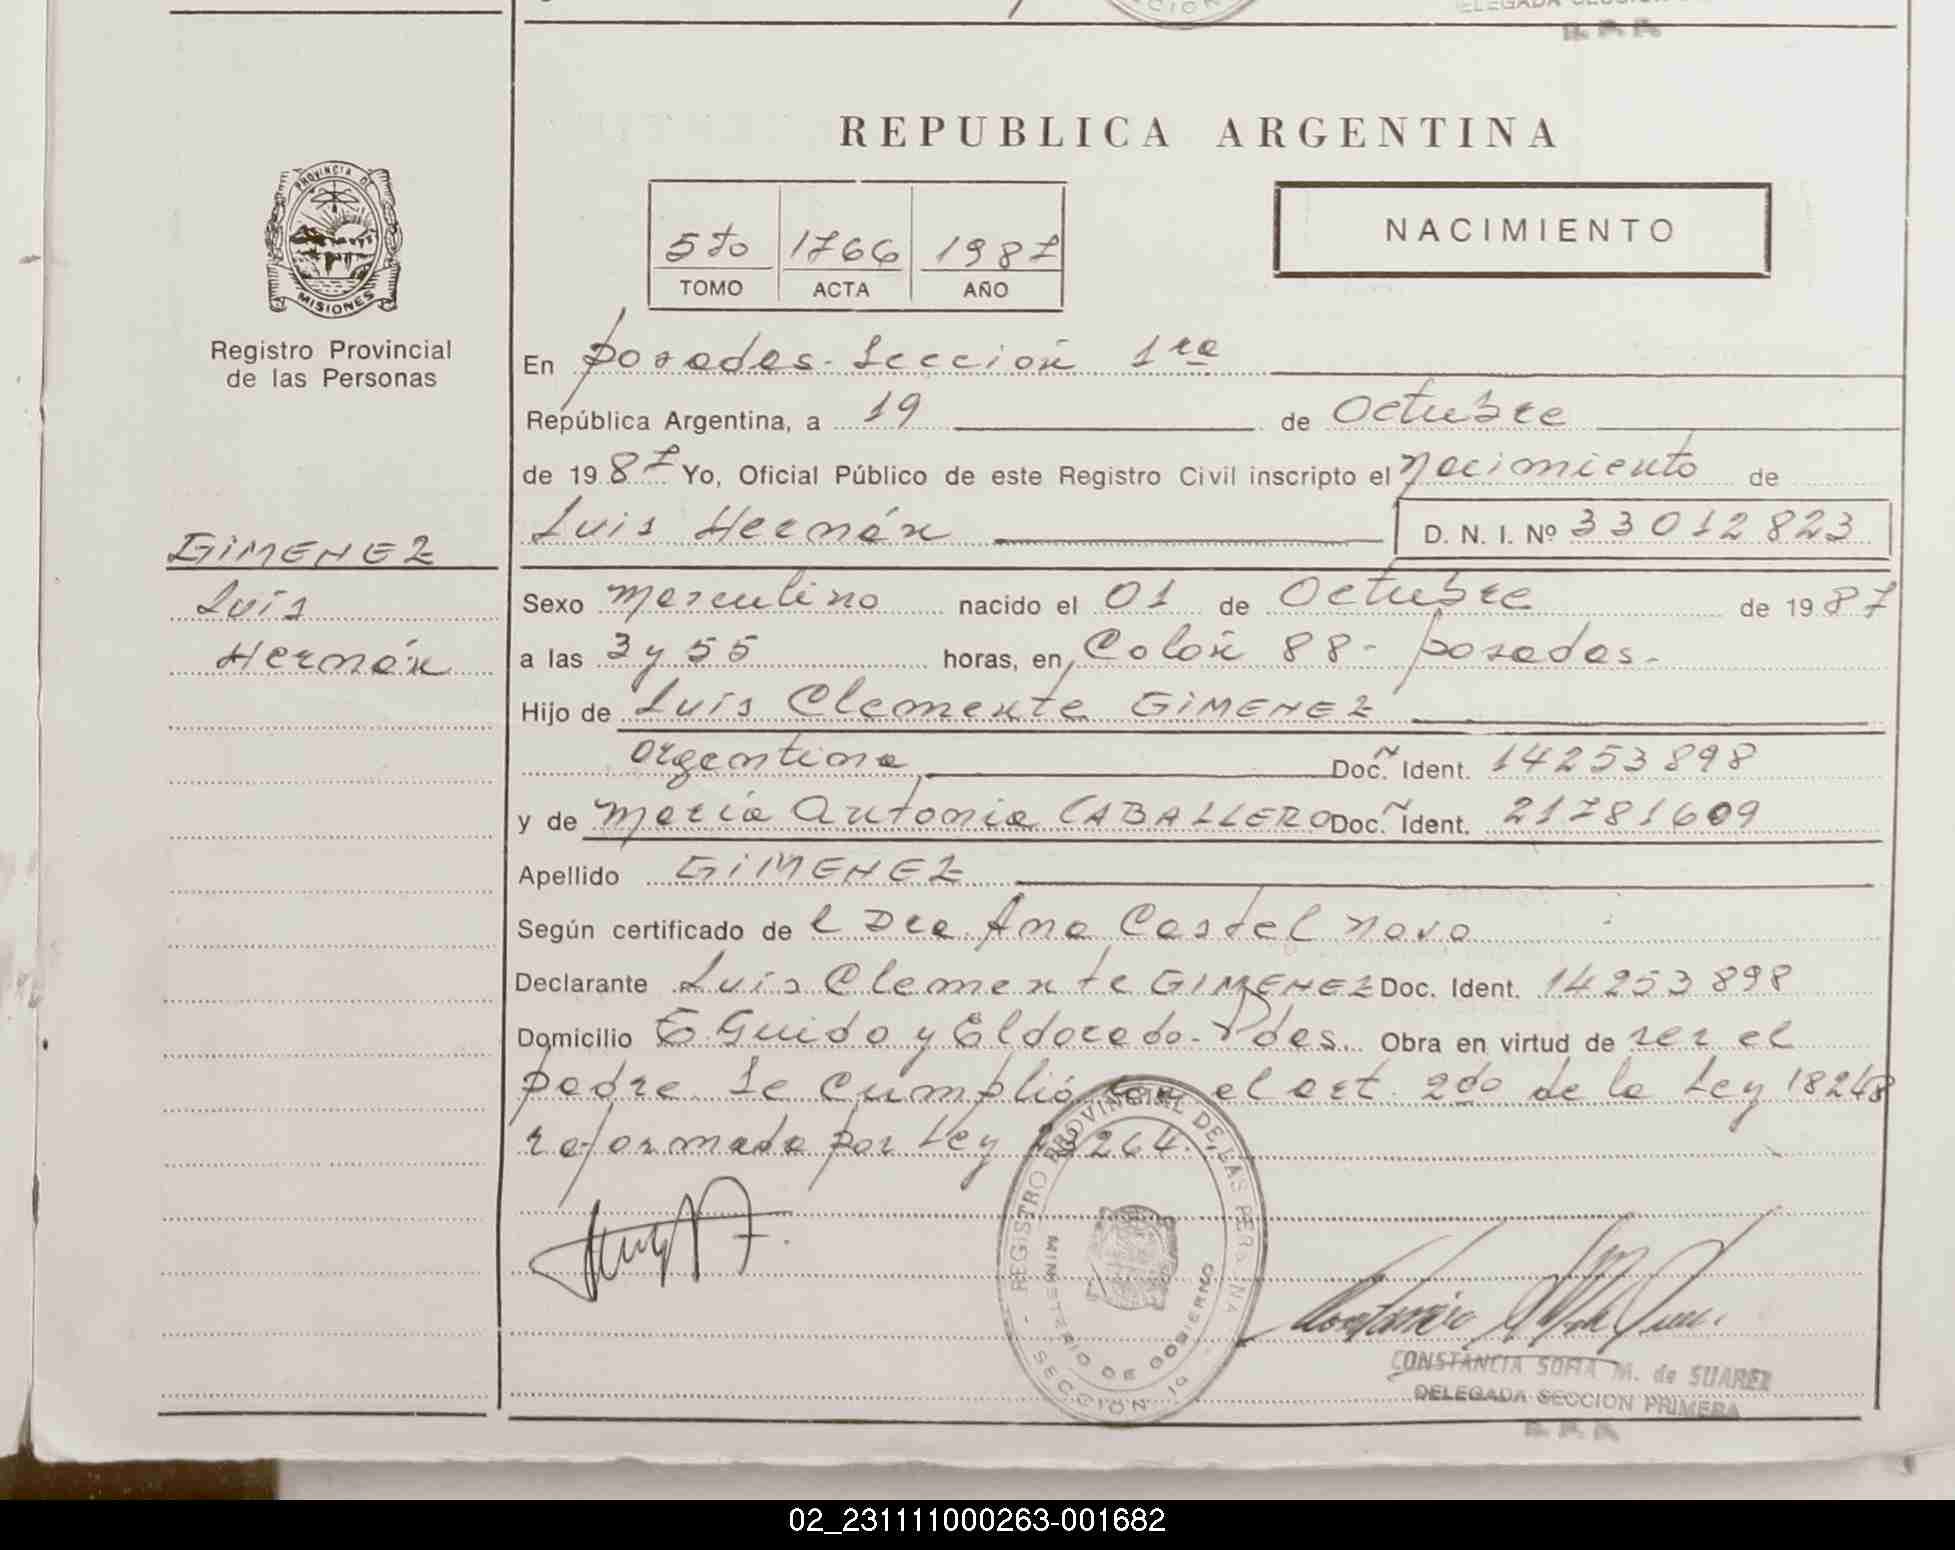 REPUBLICA ARGENTINA
PROVINCIA DE
MISIONES
Registro Provincial
de las Personas
5to 1766 1987
TOMO ACTA AÑO
NACIMIENTO
En Posadas - Sección 1ra
República Argentina, a 19 de Octubre
de 1987 Yo, Oficial Público de este Registro Civil inscripto el Nacimiento de
Luis Hernán D. N. I. Nº 33012823
GIMENEZ
Luis
Hernán
Sexo Masculino nacido el 01 de Octubre de 1987
a las 3 y 55 horas, en Colón 88 - Posadas.-
Hijo de Luis Clemente GIMENEZ
argentina Doc. Ident. 14253898
y de María Antonia CABALLERO Doc. Ident. 21781609
Apellido GIMENEZ
Según certificado de l Dra. Ana Castel Novo
Declarante Luis Clemente GIMENEZ Doc. Ident. 14253898
Domicilio E. Guido y Eldorado - Pdas. Obra en virtud de ser el
padre. Se cumplió con el art. 2do de la Ley 18248
reformada por Ley 23264.
REGISTRO PROVINCIAL DE LAS PERSONAS
MINISTERIO DE GOBIERNO
- SECCION 1ª -
CONSTANCIA SOFIA M. de SUAREZ
DELEGADA SECCION PRIMERA
R. P. P.
02_231111000263-001682